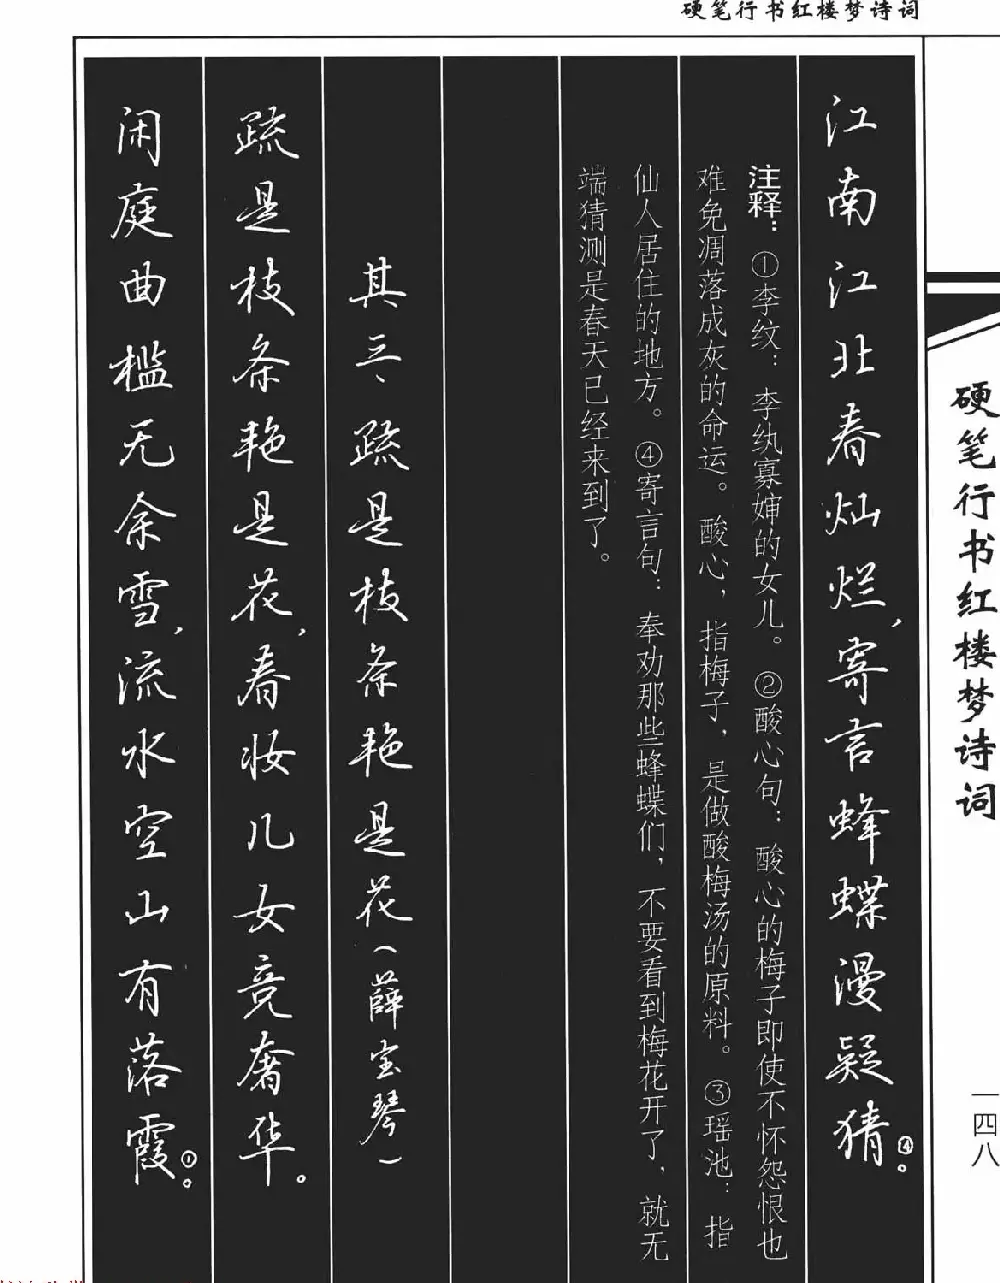 硬笔行书红楼梦诗词
江南江北春灿烂，寄言蜂蝶漫疑猜④。
注释：①李纹：李纨寡婶的女儿。②酸心句：酸心的梅子即使不怀怨恨也
难免凋落成灰的命运。酸心，指梅子，是做酸梅汤的原料。③瑶池：指
仙人居住的地方。④寄言句：奉劝那些蜂蝶们，不要看到梅花开了，就无
端猜测是春天已经来到了。
其三、疏是枝条艳是花（薛宝琴）
疏是枝条艳是花，春妆儿女竞奢华。
闲庭曲槛无余雪，流水空山有落霞①。
硬笔行书红楼梦诗词
一四八